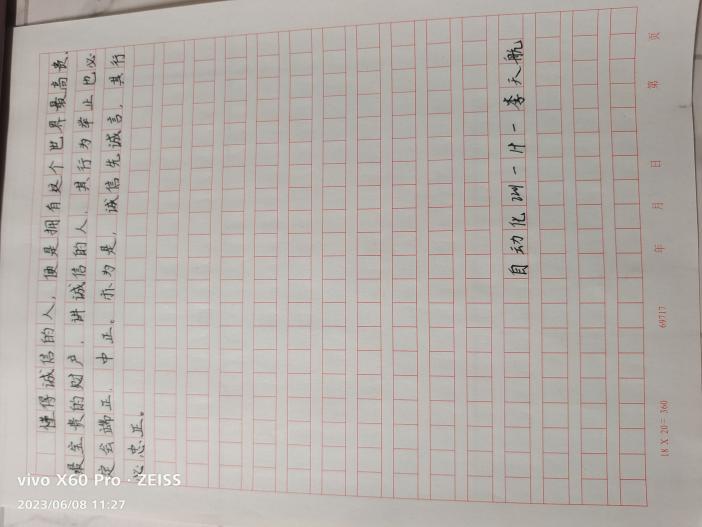 懂得诚信的人，便是拥有这个世界最高贵、
最宝贵的财产，讲诚信的人，其行为举止也必
定会端正，中正。亦为是，诚信先诚言，其行
必忠正。
自动化 一 李天航
页 第 日 月 年 69717 18 X 20 = 360
vivo X60 Pro · ZEISS
2023/06/08 11:27